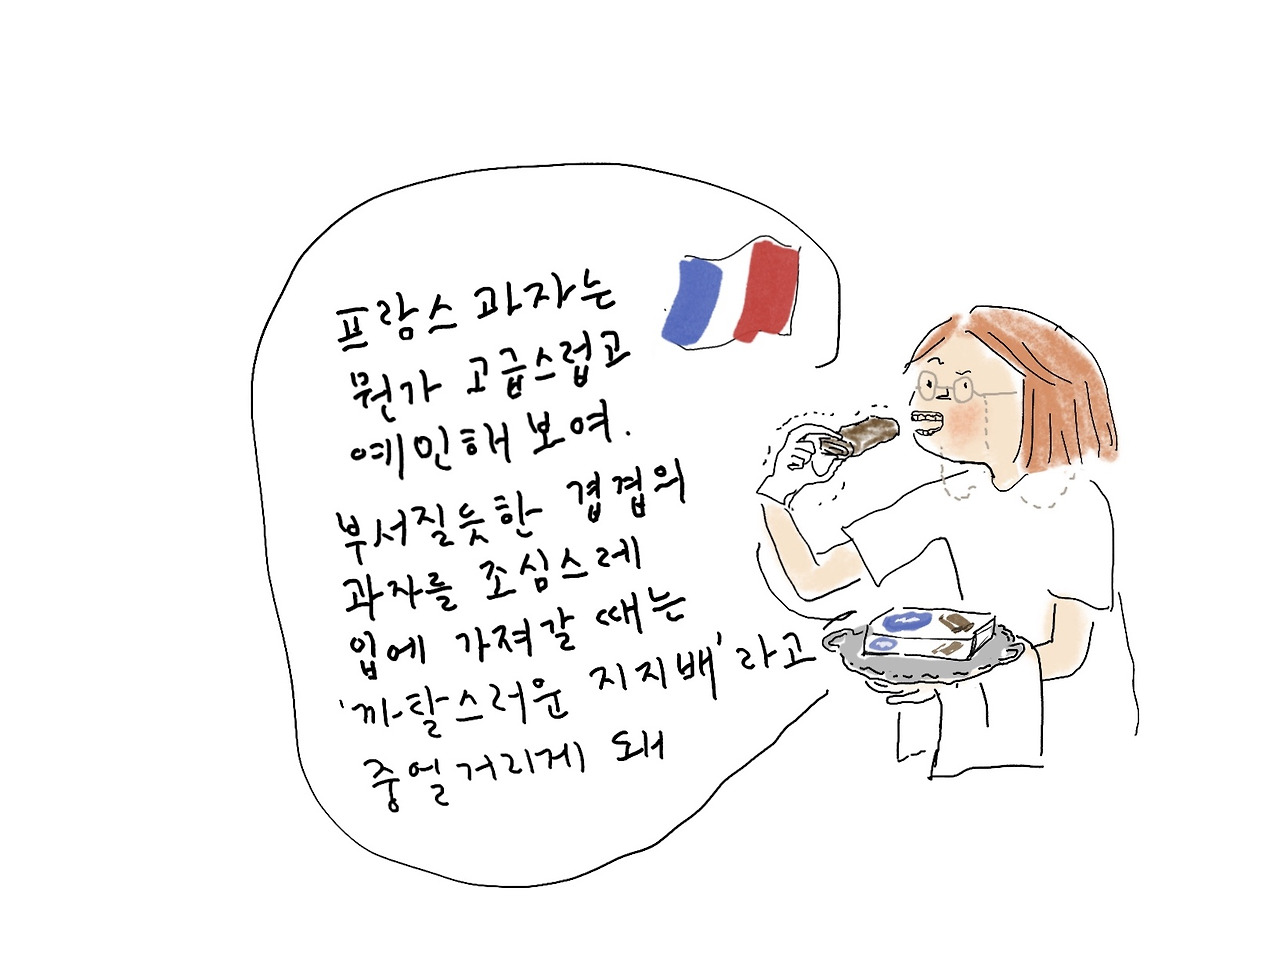 프랑스 과자는
뭔가 고급스럽고
예민해 보여.
부서질듯한 겹겹의
과자를 조심스레
입에 가져갈 때는
'까탈스러운 지지배'라고
중얼거리게 돼